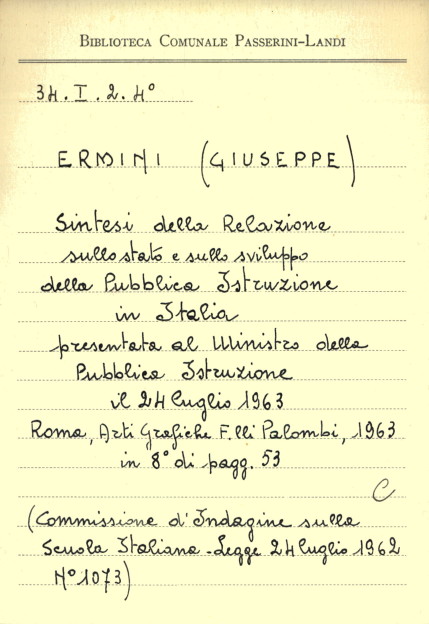 BIBLIOTECA COMUNALE PASSERINI-LANDI
34. I. 2. 4°
ERMINI (GIUSEPPE)
Sintesi della Relazione
sullo stato e sullo sviluppo
della Pubblica Istruzione
in Italia
presentata al Ministro della
Pubblica Istruzione
il 24 luglio 1963
Roma, Arti Grafiche F.lli Palombi, 1963
in 8° di pagg. 53
C
(Commissione d'Indagine sulla
Scuola Italiana - Legge 24 luglio 1962
N° 1073)